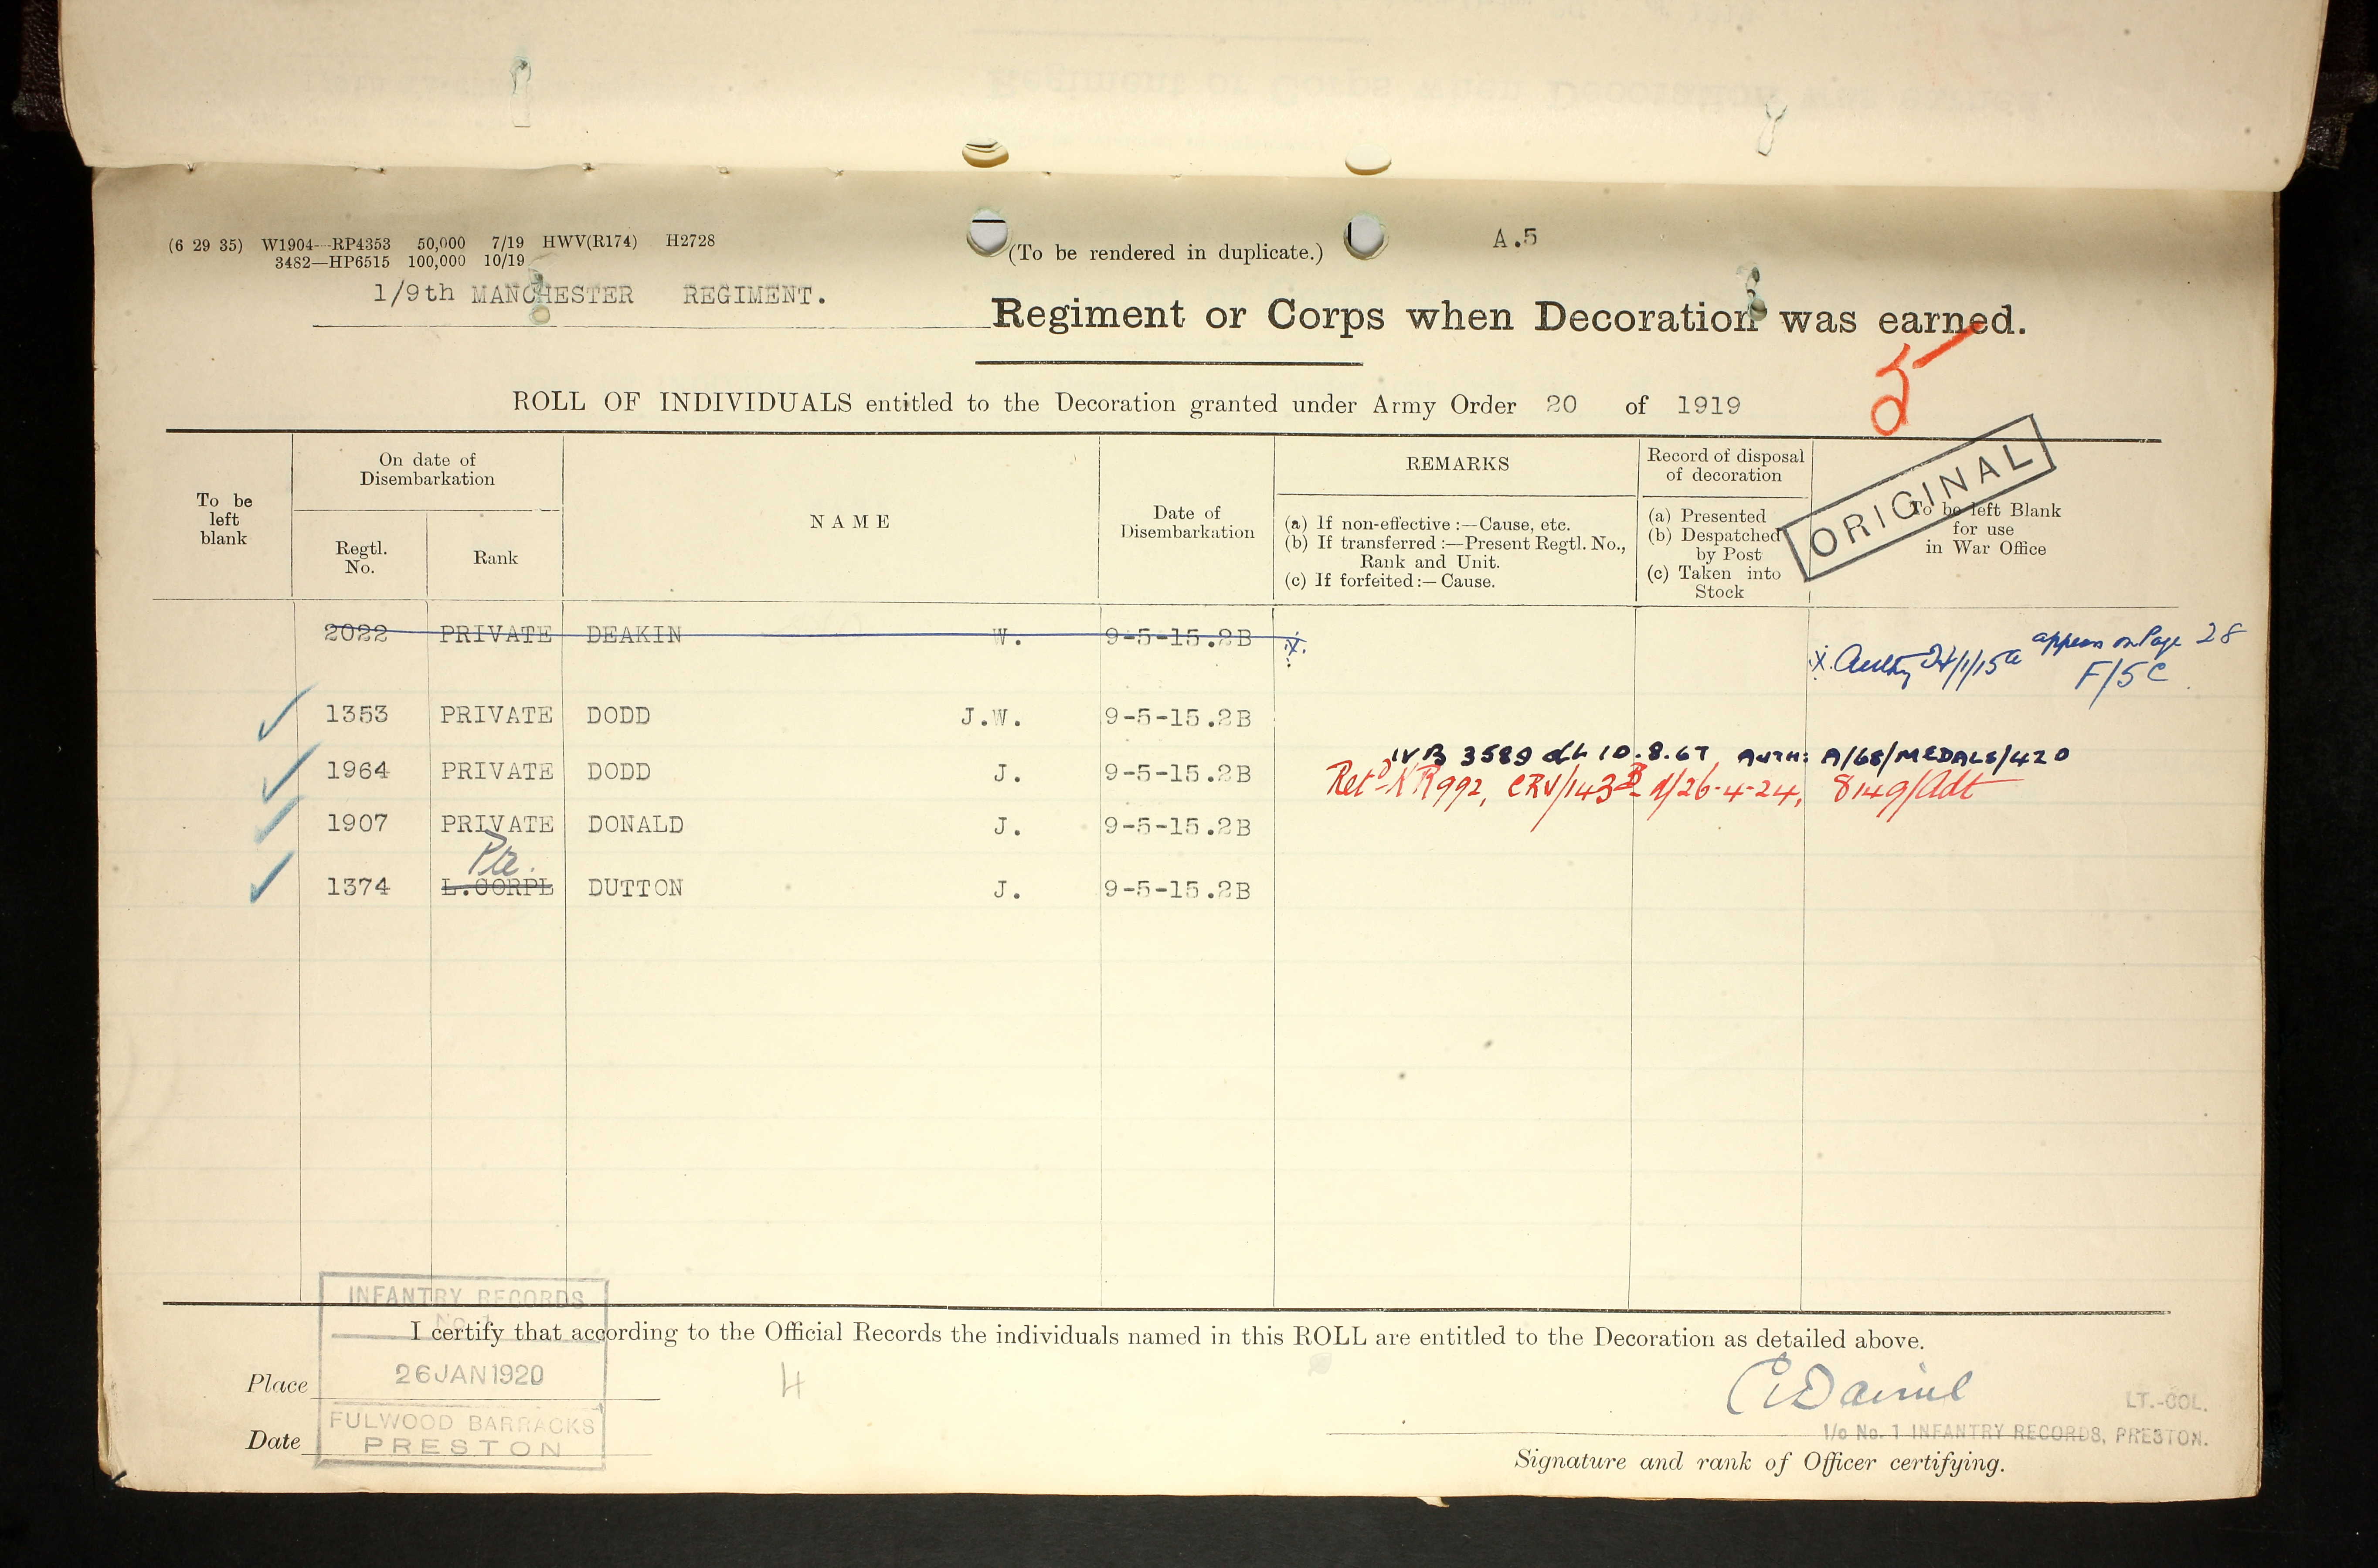 (6 29 35) W1904—RP4353 50,000 7/19 HWV(R174) H2728
3482—HP6515 100,000 10/19
(To be rendered in duplicate.)
A.5
1/9th MANCHESTER REGIMENT.
Regiment or Corps when Decoration was earned.
5
ROLL OF INDIVIDUALS entitled to the Decoration granted under Army Order 20 of 1919
ORIGINAL
To be left blank
On date of Disembarkation
Regtl. No.
Rank
NAME
Date of Disembarkation
REMARKS
(a) If non-effective :—Cause, etc.
(b) If transferred :—Present Regtl. No., Rank and Unit.
(c) If forfeited :— Cause.
Record of disposal of decoration
(a) Presented
(b) Despatched by Post
(c) Taken into Stock
To be left Blank for use in War Office
2022 PRIVATE DEAKIN W. 9-5-15.2B X.
X. Authy 24/1/15a appears on Page 28
F/5C
1353 PRIVATE DODD J.W. 9-5-15.2B
IVB 3589 dt 10.8.67 AUTH: A/68/MEDALS/420
1964 PRIVATE DODD J. 9-5-15.2B
Retd NR992, CRV/143B d/26-4-24, 8149/Adt
1907 PRIVATE DONALD J. 9-5-15.2B
Pte.
1374 L.CORPL DUTTON J. 9-5-15.2B
INFANTRY RECORDS
No. 1
I certify that according to the Official Records the individuals named in this ROLL are entitled to the Decoration as detailed above.
Place
26 JAN 1920
4
Date
FULWOOD BARRACKS
PRESTON
LT.-COL.
I/c No. 1 INFANTRY RECORDS, PRESTON.
Signature and rank of Officer certifying.